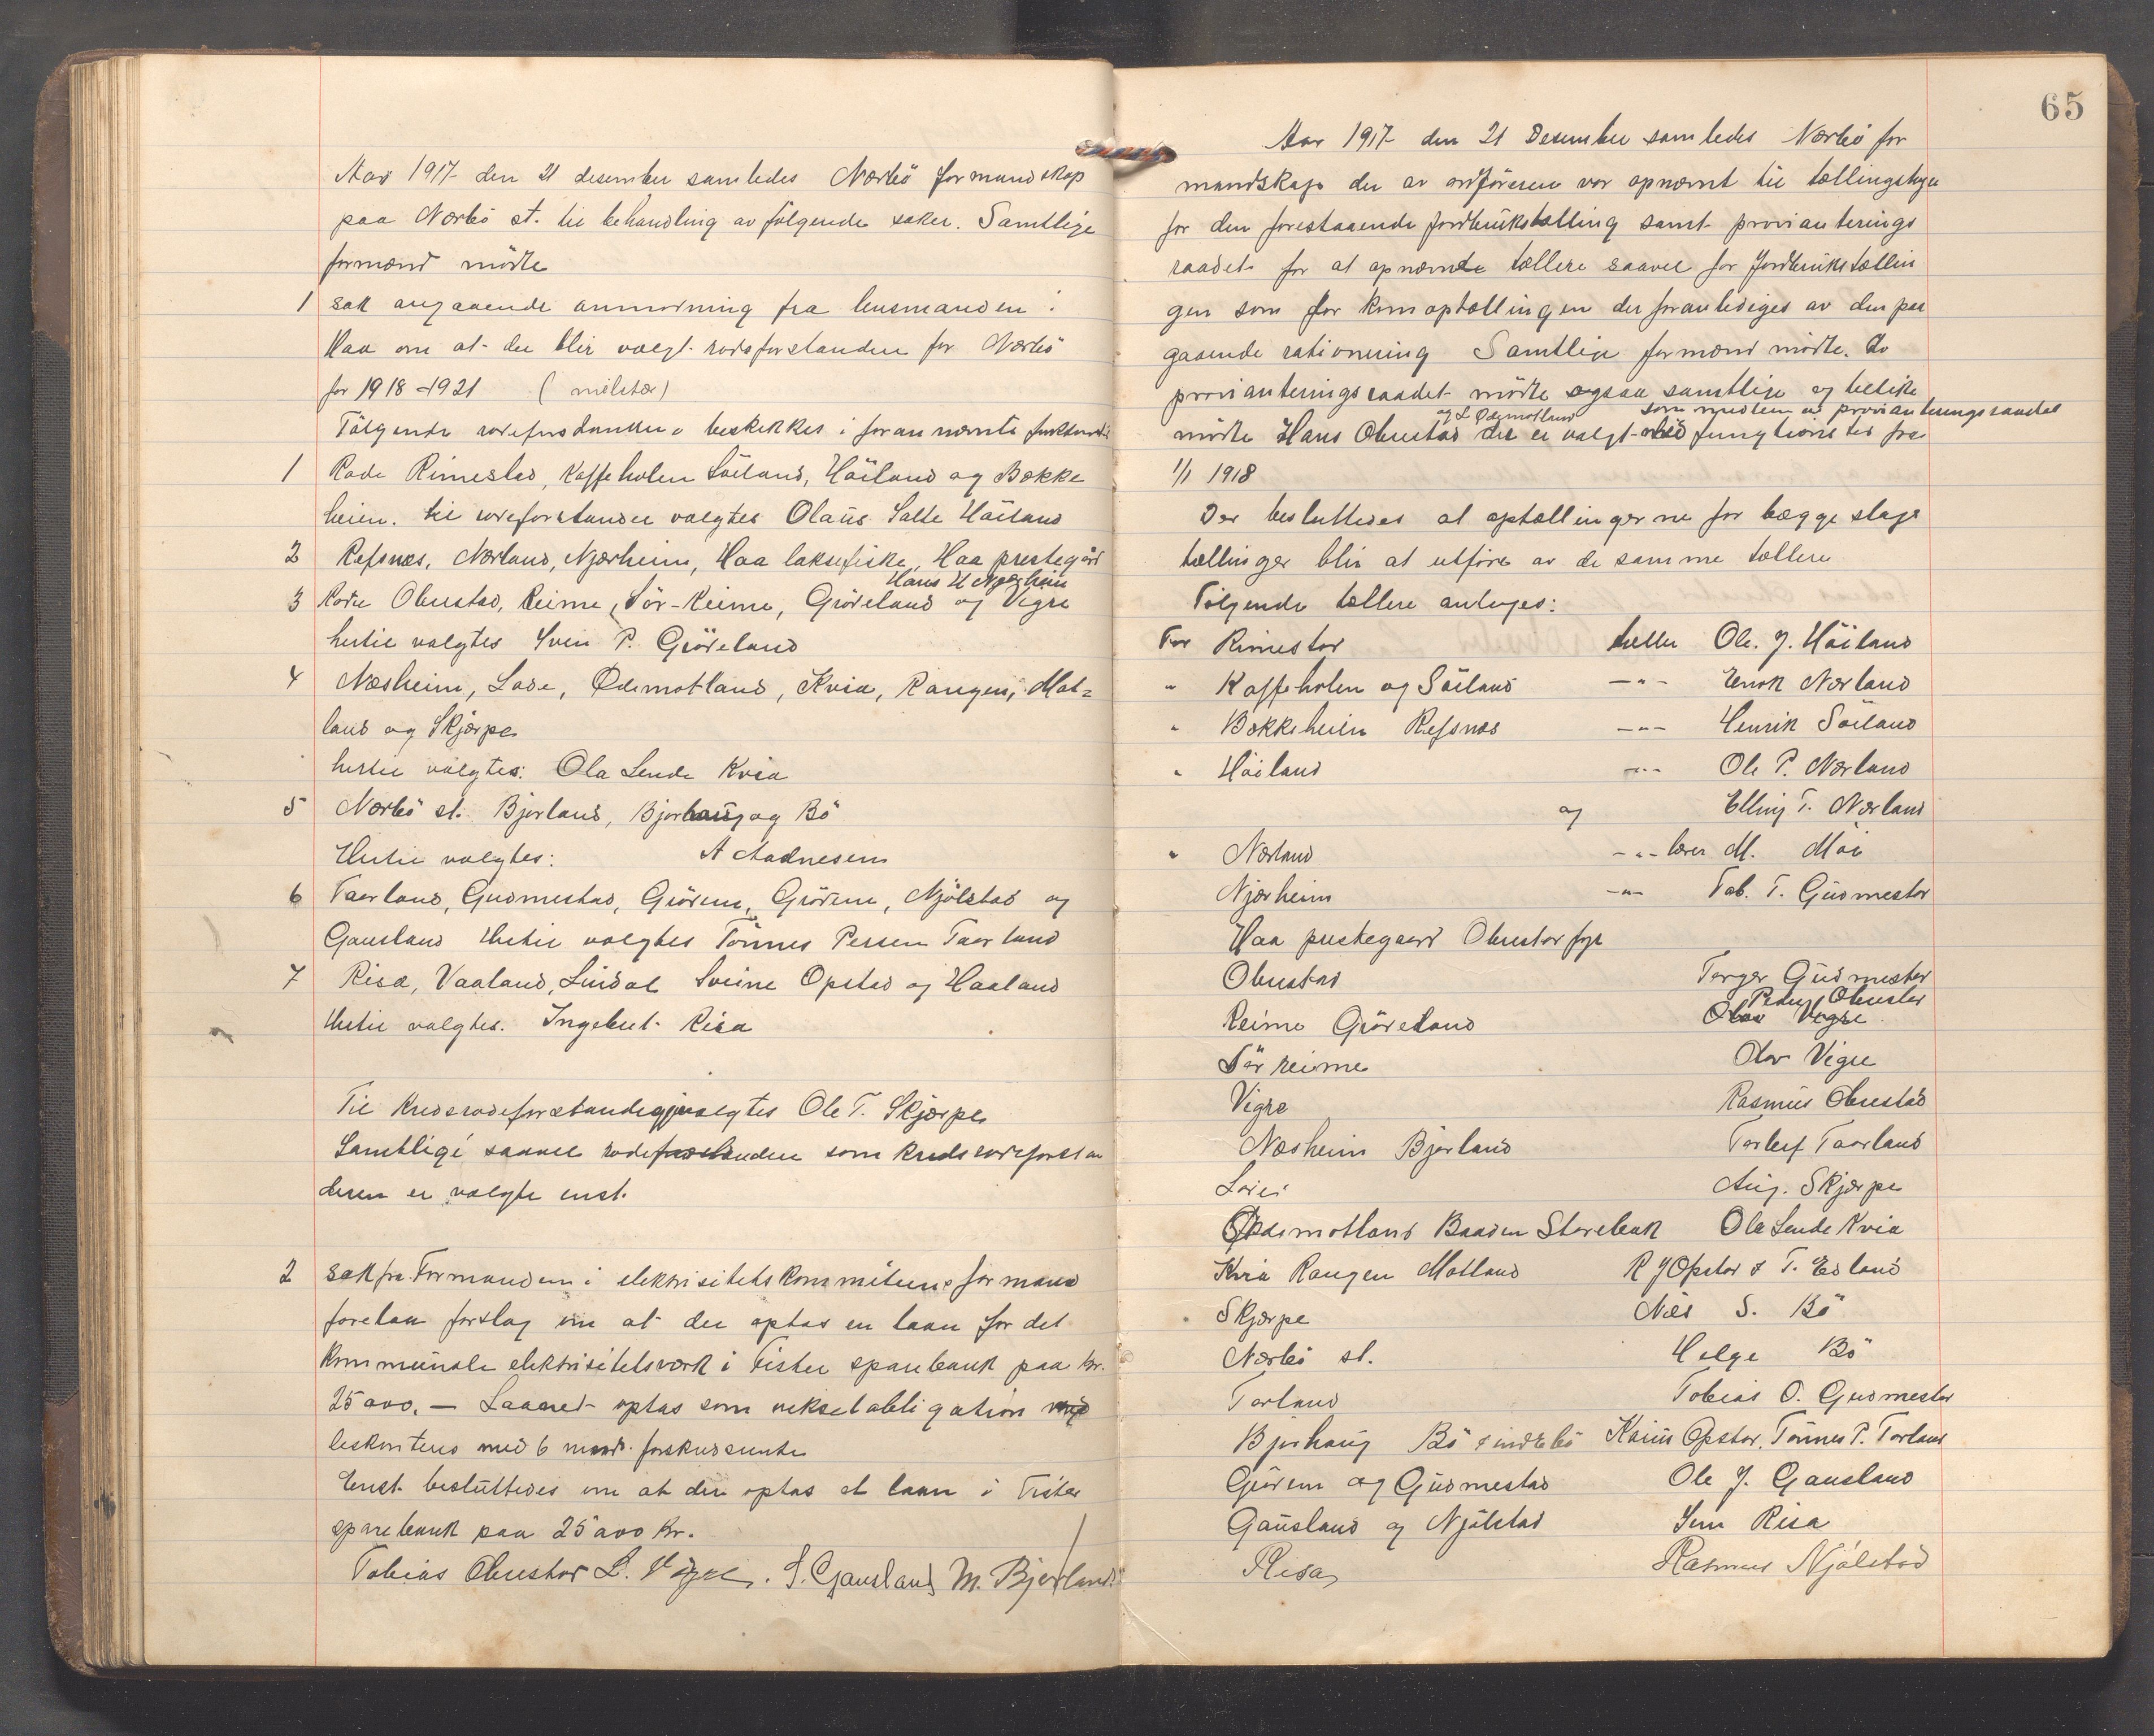 Aar 1917 den 21 desember samledes Nærbö formandskap
paa Nærbö st. til behandling av følgende saker. Samtlige
formænd mödte
1 sak angaaende anmodning fra lensmanden i
Haa om at der blir valgt rodeforstander for Nærbö
for 1918-1921 (militær)
Følgende rodeforstandere beskikkes i foran nævnte
1 Rode Rimestad, Kaffeholen Söiland, Höiland og Bække
heien. til rodeforstander valgtes Olaüs Salte Höiland
2 Refsnæs, Nærland, Njærheim, Haa laksefiske, Haa prestegård
Hans H Njærheim
3 Rode Obrestad, Reime, Sör-Reime, Grödeland og Vigre
hertil valgtes Sven P. Grödeland
4 Næsheim, Lode, Ødemotland, Kvia, Rangen, Mot=
land og Skjærpe
hertil valgtes: Ola Lende Kvia
5 Nærbö st. Bjorland, Bjorhaug og Bö
Hertil valgtes: A Aadnesen
6 Taarland, Gudmestad, Grödem, Grödem, Njölstad og
Gausland Hertil valgtes Tönnes Persen Taarland
7 Risa, Vaaland, Lindal Sveine Opstad og Haaland
Hertil valgtes. Ingebret Risa
Til Kredsrodeforstander valgtes Ole T. Skjærpe
Samtlige saavel rodeforstander som kredsrodeforstan
deren er valgte enst.
2 sak fra Formanden i elektrisitetskommiteens formand
forelaa forslag om at der optas en laan for det
kommünale elektrisitetsverk i Tister sparebank paa kr.
25000. — Laanet optas som vekselobligation
deskonteres med 6 mnds. forskudsrente
Enst. beslüttedes om at der optas et laan i Tister
sparebank paa 25000 kr.
Tobias Obrestad L. Vigre. S. Gausland M. Bjorland
65
Aar 1917 den 21 Desember samledes Nærbö for
mandskap der av ordföreren var opnævnt til tællingstyre
for den forestaaende jordbrükstælling samt provianterings
raadet for at opnævnte tællere saavel for Jordbrükstællin
gen som for kornoptællingen der foranlediges av den paa
gaaende rationering Samtlige formænd mödte. Av
provianteringsraadet mödte ogsaa samtlige og likeledes
og L Ødemotland som medlem av provianteringsraadet
mödte Hans Obrestad der er valgt fungtionstid fra
1/1 1918
Der besluttedes at optællingerne for begge slags
tællinger blir at utföre av de samme tællere
Følgende tællere antages:
For Rimestad tæller Ole. J. Höiland
" Kaffeholen og Söiland —"— Enok Nærland
" Bækkeheien Refsnæs —"— Henrik Söiland
" Höiland —"— Ole P. Nærland
og Elling T. Nærland
" Nærland —"— lærer M. Moi
Njærheim —"— Tob. T. Gudmestad
Haa prestegaard Obrestad fyr
Obrestad Torger Güdmestad
Peder Obrestad
Reime Grödeland Olav Vigre
Sör reime Olav Vigre
Vigre Rasmus Obrestad
Næsheim Bjorland Torleif Taarland
Lode Aug. Skjærpe
Ødemotland Baaden Storebæk Ole Lende Kvia
Kvia Rangen Motland R J Opstad & T. Edland
Skjærpe Nils S. Bö
Nærbö st. Helge Bö
Torland Tobias O. Gudmestad
Bjorhaug Bö Opstad, Tönnes P. Torland
Grödem og Güdmestad Ole J. Gausland
Gausland og Njölstad Sem Risa
Risa Rasmus Njölstad